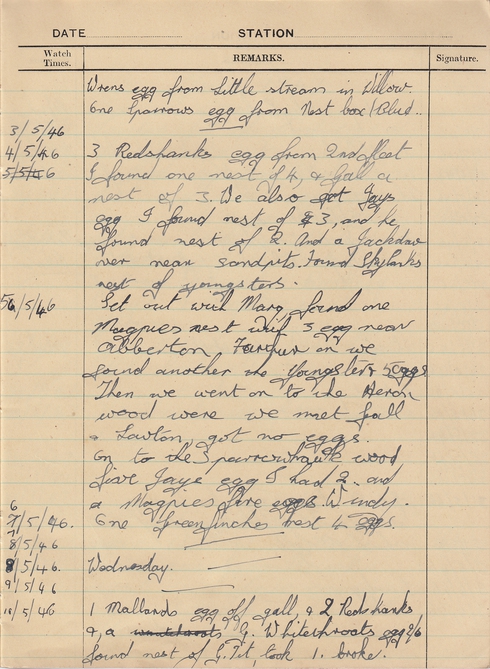 DATE STATION
Watch Times. REMARKS. Signature.
Wrens egg from Little stream in Willow.
One Sparrows egg from Nest box
3/5/46
4/5/46 3 Redshanks egg from 2nd fleet
5/5/46 I found one nest of 4, & Gall a
nest of 3. We also got Jays
egg I found nest of 3, and he
found nest of 2. And a Jackdaw
over near sandpits. Found Skylarks
nest of youngsters.
6/5/46 Set out with Marg found one
Magpies nest with 3 egg near
Abberton Further on we
found another one Youngsters 5 eggs
Then we went on to the Heron
wood were we met Gall
& Lawton, got no eggs.
On to the Sparrowhawk wood
five Jays egg I had 2. and
a Magpies five eggs. Windy.
6
7/5/46. One Greenfinches nest 4 eggs.
8/5/46
8/5/46. Wednesday.
9/5/46
10/5/46 1 Mallards egg off gall, & 2 Redshanks
&, a G. Whitethroats egg 2/6
found nest of G. Tit, took 1. broke.